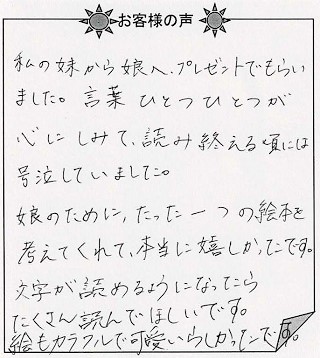 お客様の声
私の妹から娘へ、プレゼントでもらい
ました。言葉ひとつひとつが
心にしみて、読み終える頃には
号泣していました。
娘のために、たった一つの絵本を
考えてくれて、本当に嬉しかったです。
文字が読めるようになったら
たくさん読んでほしいです。
絵もカラフルで可愛いらしかったです。